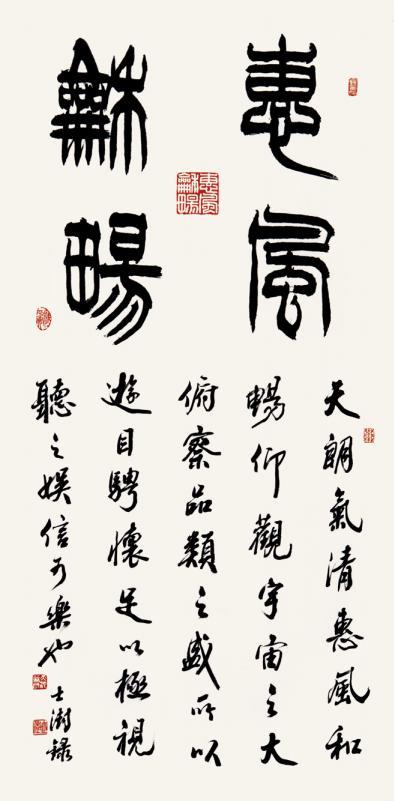 惠風
龢畼
惠風
龢畼
天朗氣清惠風和
暢仰觀宇宙之大
俯察品類之盛所以
遊目騁懷足以極視
聽之娛信可樂也
士澍錄